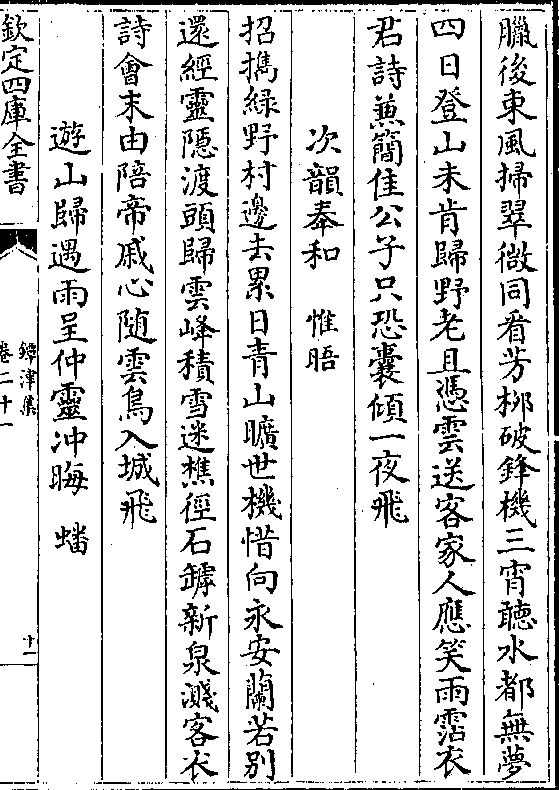 臘後東風掃翠微同看芳栁破鋒機三宵聽水都無夢
四日登山未肯歸野老且憑雲送客家人應笑雨霑衣
君詩蕉簡佳公子只恐囊傾一夜飛
次韻奉和　惟晤
招擕緑野村邊去累日青山曠世機惜向永安蘭若別
還經靈隱渡頭歸雲峰積雪迷樵徑石罅新泉濺客衣
詩會末由陪帝戚心随雲鳥入城飛
遊山歸遇雨呈仲靈冲晦　蟠
欽定四庫全書
鐔津集
卷二十一
十一